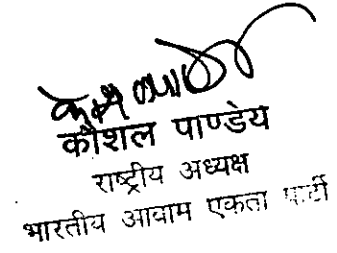 कौशल पाण्डेय
राष्ट्रीय अध्यक्ष
भारतीय आवाम एकता पार्टी